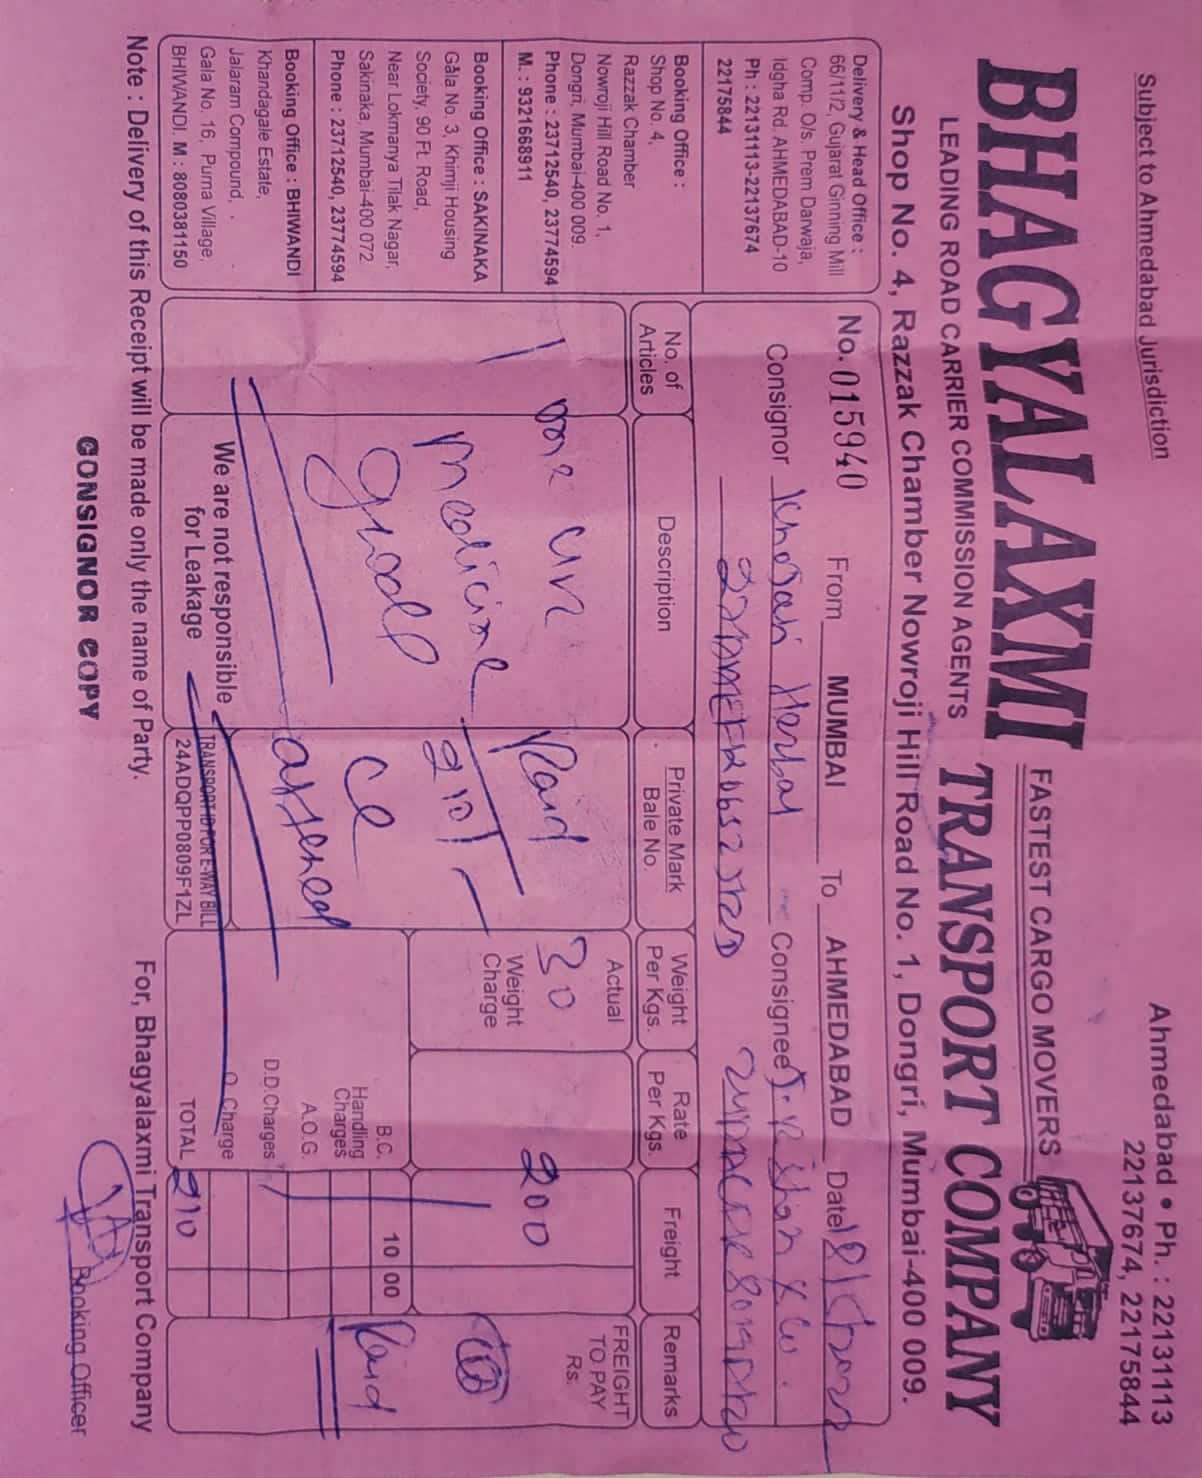 Subject to Ahmedabad Jurisdiction
Ahmedabad • Ph. : 22131113
22137674, 22175844
BHAGYALAXMI
FASTEST CARGO MOVERS
TRANSPORT COMPANY
LEADING ROAD CARRIER COMMISSION AGENTS
Shop No. 4, Razzak Chamber Nowroji Hill Road No. 1, Dongri, Mumbai-400 009.
Delivery & Head Office :
66/11/2, Gujarat Ginning Mill
Comp. O/s. Prem Darwaja,
Idgha Rd. AHMEDABAD-10
Ph : 22131113-22137674
22175844
Booking Office :
Shop No. 4,
Razzak Chamber
Nowroji Hill Road No. 1,
Dongri, Mumbai-400 009.
Phone : 23712540, 23774594
M. : 9321668911
Booking Office : SAKINAKA
Gala No. 3, Khimji Housing
Society, 90 Ft. Road,
Near Lokmanya Tilak Nagar,
Sakinaka, Mumbai-400 072
Phone : 23712540, 23774594
Booking Office : BHIWANDI
Khandagale Estate,
Jalaram Compound,
Gala No. 16, Purna Village,
BHIWANDI. M : 8080381150
No. 015940 From MUMBAI To AHMEDABAD Date
Consignor Herbal Consignee
No. of Articles
Description
Private Mark
Bale No.
Weight Per Kgs.
Rate Per Kgs.
Freight
Remarks
1
one
medicine
Paid
210/-
attened
We are not responsible
for Leakage
TRANSPORT ID FOR E-WAY BILL
24ADQPP0809F1ZL
Actual
30
Weight
Charge
200
FREIGHT
TO PAY
Rs.
B.C. 10 00
Handling
Charges
A.O.G.
D.D.Charges
Charge
TOTAL 210
Paid
Note : Delivery of this Receipt will be made only the name of Party.
For, Bhagyalaxmi Transport Company
Booking Officer
CONSIGNOR COPY